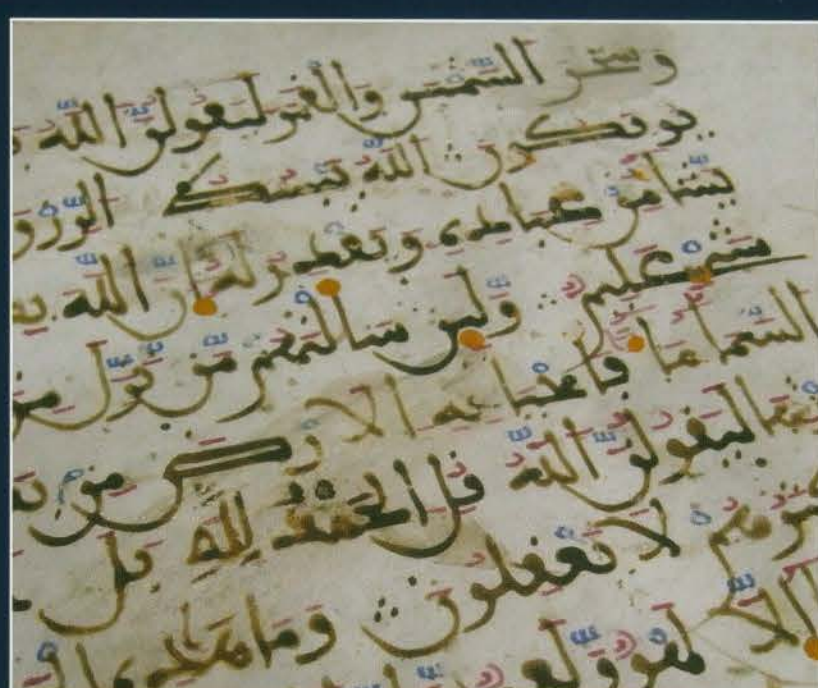 وسخر الشمس والقمر ليقولن الله
يوفكون الله يبسط الرزق
يشا من عباده ويقدر له ان الله
شى عليم ولين سالتهم من نزل من
السما ما فاحيا به الارض من
ليقولن الله قل الحمد لله بل
لا يعقلون وما هذه
الا لهو ولعب